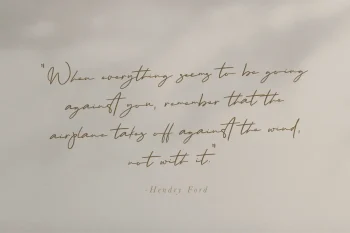 "When everything seems to be going
against you, remember that the
airplane takes off against the wind,
not with it."
-Hendry Ford